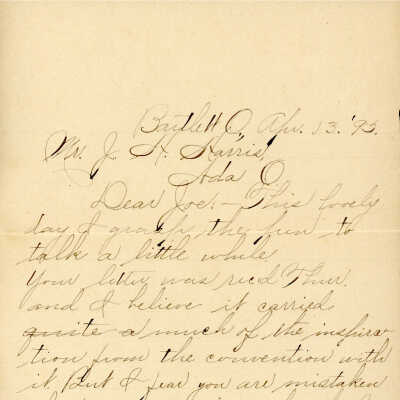 Bartlett O, Apr. 13. '95.
Mr. J. H. Harris,
Ada O.
Dear Joe: - This lovely
day I grasp the pen to
talk a little while
Your letter was recd Thur.
and I believe it carried
quite a much of the inspira
tion from the convention with
it. But I fear you are mistaken